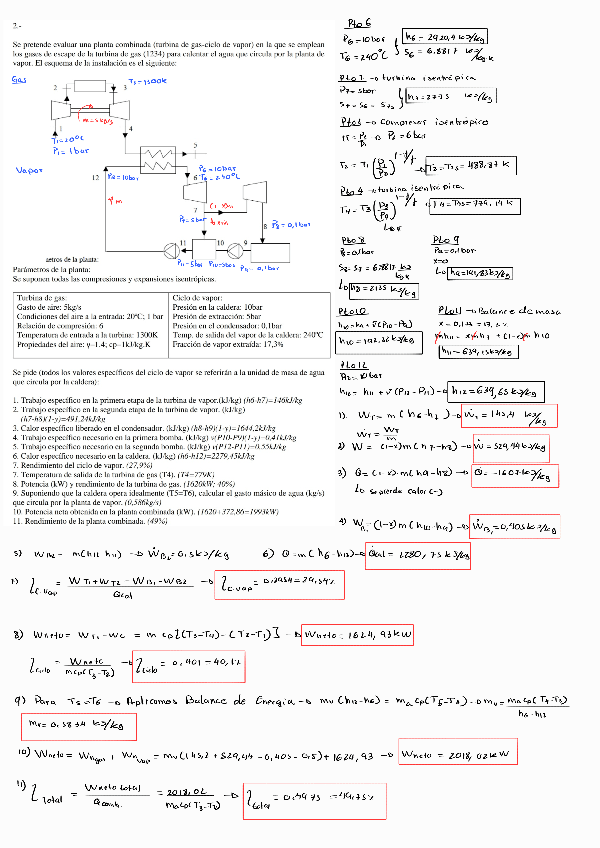 2.-
Se pretende evaluar una planta combinada (turbina de gas-ciclo de vapor) en la que se emplean
los gases de escape de la turbina de gas (1234) para calentar el agua que circula por la planta de
vapor. El esquema de la instalación es el siguiente:
Gas
2
3
T3=1300K
m=5kg/s
1
4
T1=20ºC
P1=1bar
5
Vapor
12
P12=10bar
P6=10bar
6 T6=240ºC
7
P7=5bar
8 P8=0,1bar
11
10
9
P11=5bar P10=5bar
P9=0,1bar
aetros de la planta:
Parámetros de la planta:
Se suponen todas las compresiones y expansiones isentrópicas.
Turbina de gas:
Gasto de aire: 5kg/s
Condiciones del aire a la entrada: 20ºC; 1 bar
Relación de compresión: 6
Temperatura de entrada a la turbina: 1300K
Propiedades del aire: γ=1.4; cp=1kJ/kg.K
Ciclo de vapor:
Presión en la caldera: 10bar
Presión de extracción: 5bar
Presión en el condensador: 0,1bar
Temp. de salida del vapor de la caldera: 240ºC
Fracción de vapor extraída: 17,3%
Se pide (todos los valores específicos del ciclo de vapor se referirán a la unidad de masa de agua
que circula por la caldera):
1. Trabajo específico en la primera etapa de la turbina de vapor.(kJ/kg) (h6-h7)=146kJ/kg
2. Trabajo específico en la segunda etapa de la turbina de vapor. (kJ/kg)
(h7-h8)(1-y)=491,24kJ/kg
3. Calor específico liberado en el condensador. (kJ/kg) (h8-h9)(1-y)=1644,2kJ/kg
4. Trabajo específico necesario en la primera bomba. (kJ/kg) v(P10-P9)(1-y)=0,41kJ/kg
5. Trabajo específico necesario en la segunda bomba. (kJ/kg) v(P12-P11)=0,55kJ/kg
6. Calor específico necesario en la caldera. (kJ/kg) (h6-h12)=2279,45kJ/kg
7. Rendimiento del ciclo de vapor. (27,9%)
2. Temperatura de salida de la turbina de gas (T4). (T4=779K)
8. Potencia (kW) y rendimiento de la turbina de gas. (1620kW; 40%)
9. Suponiendo que la caldera opera idealmente (T5=T6), calcular el gasto másico de agua (kg/s)
que circula por la planta de vapor. (0,586kg/s)
10. Potencia neta obtenida en la planta combinada (kW). (1620+372,86=1993kW)
11. Rendimiento de la planta combinada. (49%)
Pto 6
P6=10bar
T6=240ºC
h6 = 2920,4 kJ/kg
S6 = 6.8817 kJ/kg·K
Pto 7 → turbina isentrópica
P7=5bar
S7=S6=S7s
h7=2775 kJ/kg
Pto 2 → Compresor isentrópico
P2=6bar
T2=T2s=488,87 K
Pto 4 → turbina isentrópica
T4=T4s=779,14 K
Pto 8
P8=0,1bar
h8=2135 kJ/kg
Pto 9
P9=0,1bar
x=0
h9=191,83 kJ/kg
Pto 10
h10=h9+v(P10-P9)
h10=192,26 kJ/kg
Pto 11 → Balance de masa
h11=639,15 kJ/kg
Pto 12
P12=10bar
h12=h11+v(P12-P11) → h12=639,65 kJ/kg
1) WT=m(h6-h7) → WT=145,4 kJ/kg
2) W=(1-x)m(h7-h8) → W=529,44 kJ/kg
3) Q=(1-x)m(h9-h8) → Q=-1607 kJ/kg
Lo se pierde calor (-)
4) WB1=(1-x)m(h10-h9) → WB1=0,405 kJ/kg
5) WB2=m(h12-h11) → WB2=0,5 kJ/kg
6) Q=m(h6-h12) → Qcal=2280,75 kJ/kg
7) ηc.vap = (WT1+WT2-WB1-WB2)/Qcal → ηc.vap = 0,2954=29,54%
8) Wneto=WT-WC = m cp[(T3-T4)-(T2-T1)] → Wneto=1624,93 kW
ηciclo = Wneto/(m cp(T3-T2)) → ηciclo = 0,401=40,1%
9) Para T5=T6 → Aplicamos Balance de Energía → mv(h12-h6) = ma cp(T5-T4) → mv = ma cp(T4-T5)/(h6-h12)
10) Wneto = Wngas + Wnvap = mv(145,2+529,44-0,405-0,5)+1624,93 → Wneto = 2018,02 kW
11) ηTotal = Wneto total/Qcomb. = 2018,02/(ma cp(T3-T2)) → ηtotal = 0,4975=49,75%